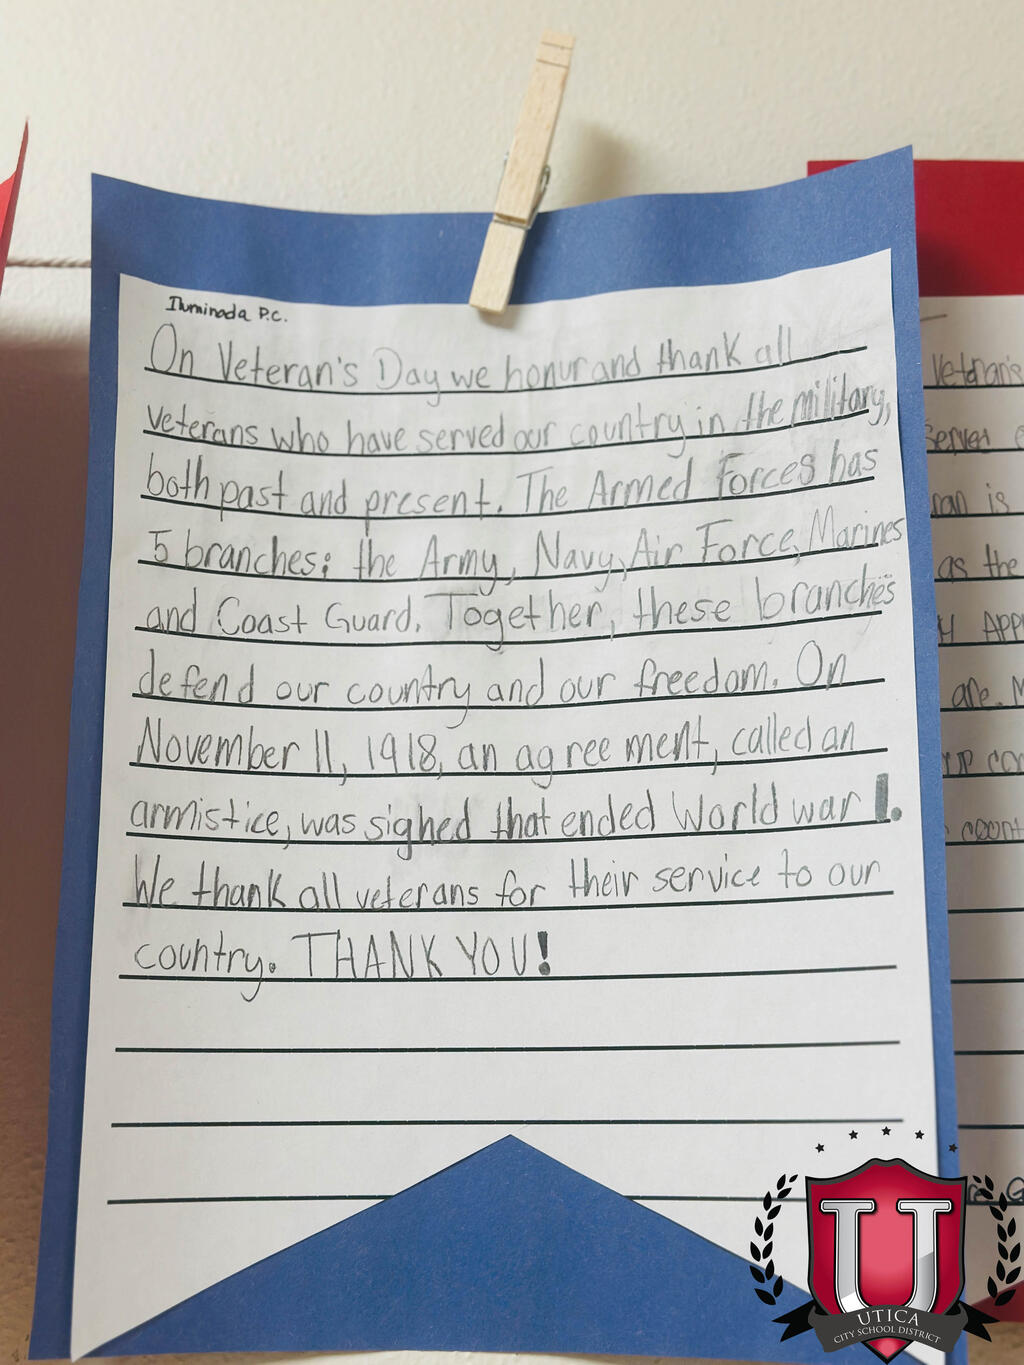 Iluminada P.C.
On Veteran's Day we honur and thank all
veterans who have served our country in the military,
both past and present. The Armed Forces has
5 branches: the Army, Navy, Air Force, Marines
and Coast Guard. Together, these branches
defend our country and our freedom. On
November 11, 1918, an agreement, called an
armistice, was sighed that ended World war I.
We thank all veterans for their service to our
country. THANK YOU!
Vetdran's
Served
is
as the
are.
U
UTICA
CITY SCHOOL DISTRICT